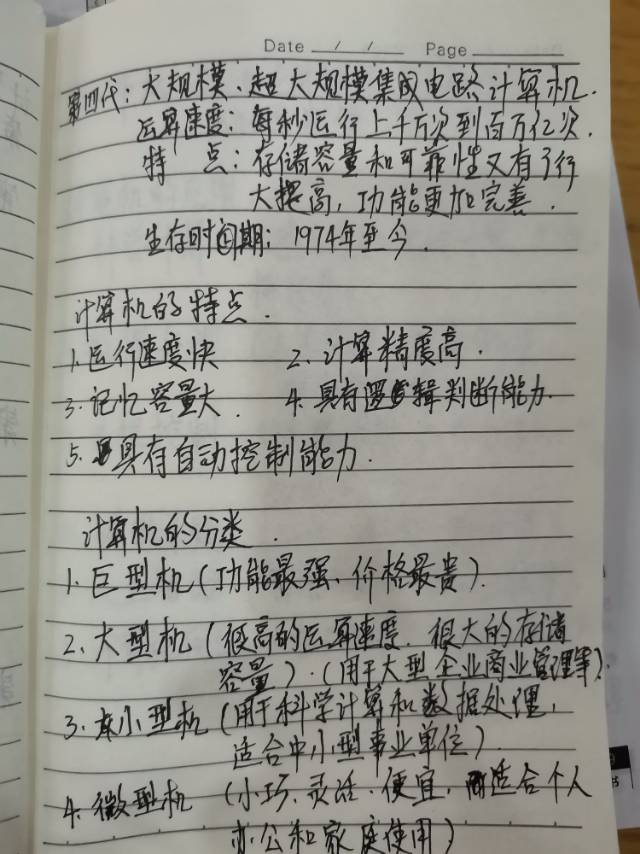 Date / / Page
第四代：大规模、超大规模集成电路计算机.
运算速度：每秒运行上千万次到百万亿次.
特 点：存储容量和可靠性又有了行
大提高，功能更加完善.
生存时间期：1974年至今.
计算机的特点.
1.运行速度快 2.计算精度高.
3.记忆容量大. 4.具有逻辑判断能力.
5.具有自动控制能力.
计算机的分类.
1.巨型机（功能最强、价格最贵）.
2.大型机（很高的运算速度.很大的存储
容量）.（用于大型企业商业管理等）.
3.小型机（用于科学计算和数据处理，
适合中小型事业单位）.
4.微型机（小巧.灵活.便宜，适合个人
办公和家庭使用）